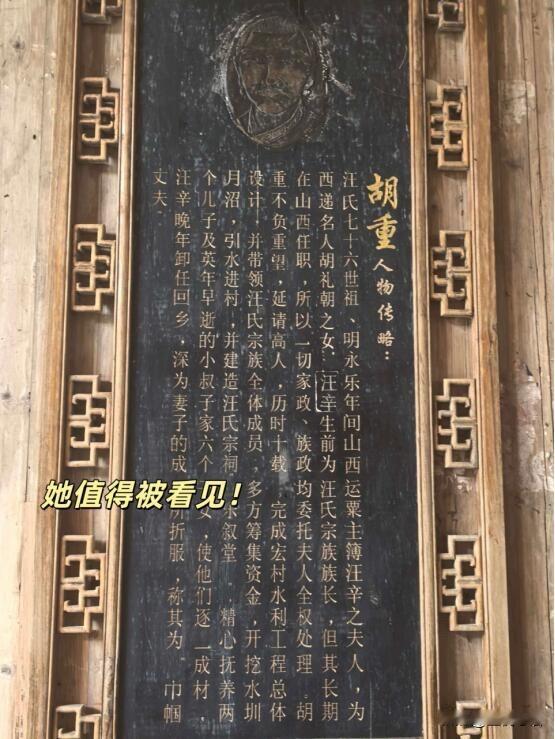 胡重人物传略：
汪氏七十六世祖、明永乐年间山西运粟主簿汪辛之夫人，为
西递名人胡礼朝之女，汪辛生前为汪氏宗族族长，但其长期
在山西任职，所以一切家政、族政均委托夫人全权处理。胡
重不负重望，延请高人，历时十载，完成宏村水利工程总体
设计，并带领汪氏宗族全体成员，多方筹集资金，开挖水圳
月沼，引水进村，并建造汪氏宗祠 乐叙堂”，精心抚养两
个儿子及英年早逝的小叔子家六个 女，使他们逐一成材，
汪辛晚年卸任回乡，深为妻子的成 折服，称其为“巾帼
丈夫”
她值得被看见！